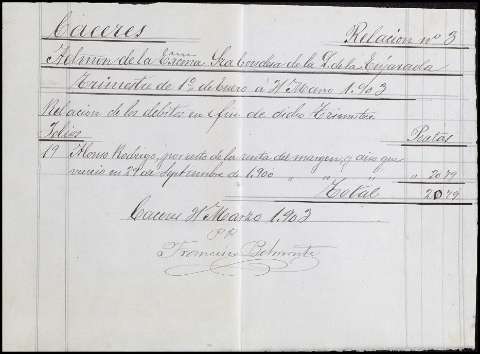 Cáceres Relacion nº 3
Admon de la Excma Sra Condesa de la T. de la Enjarada
Trimestre de 1º de Enero á 31 Marzo 1.903
Relacion de los débitos en fin de dicho Trimestre
Folios Pesetas
19 Alonso Rodrigo, por resto de la renta del margen, q dice que
vencio en 29 de Septiembre de 1.900 " " " " 20.79
Total 20.79
Cáceres 31 Marzo 1.903
P.P.
Francisco Belmonte